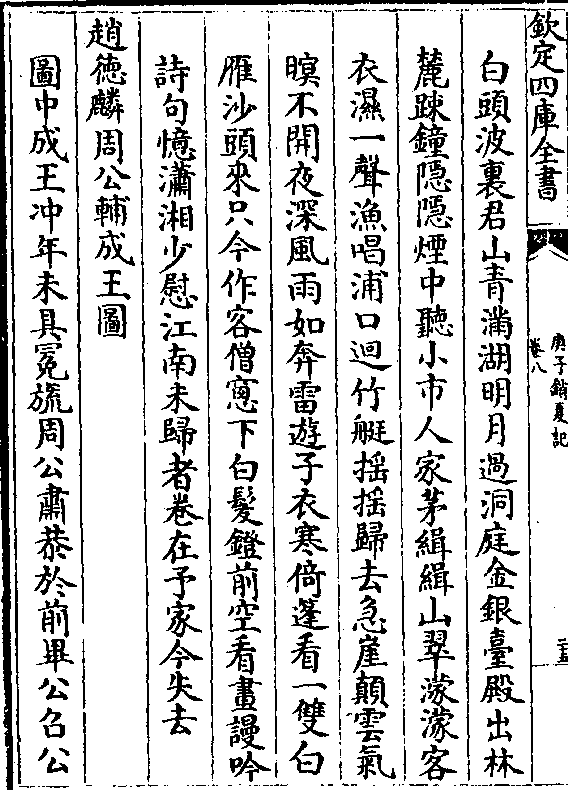 欽定四庫全書
庚子銷夏記
卷八
二五
白頭波裏君山青滿湖明月過洞庭金銀臺殿出林
麓踈鐘隠隠煙中聽小市人家茅緝緝山翠濛濛客
衣濕一聲漁唱浦口迴竹艇摇摇歸去急崖顛雲氣
暝不開夜深風雨如奔雷遊子衣寒倚篷看一雙白
雁沙頭來只今作客僧窻下白髮鐙前空看畫謾吟
詩句憶瀟湘少慰江南未歸者卷在予家今失去
趙德麟周公輔成王圖
圖中成王冲年未具冕旒周公肅恭於前畢公召公